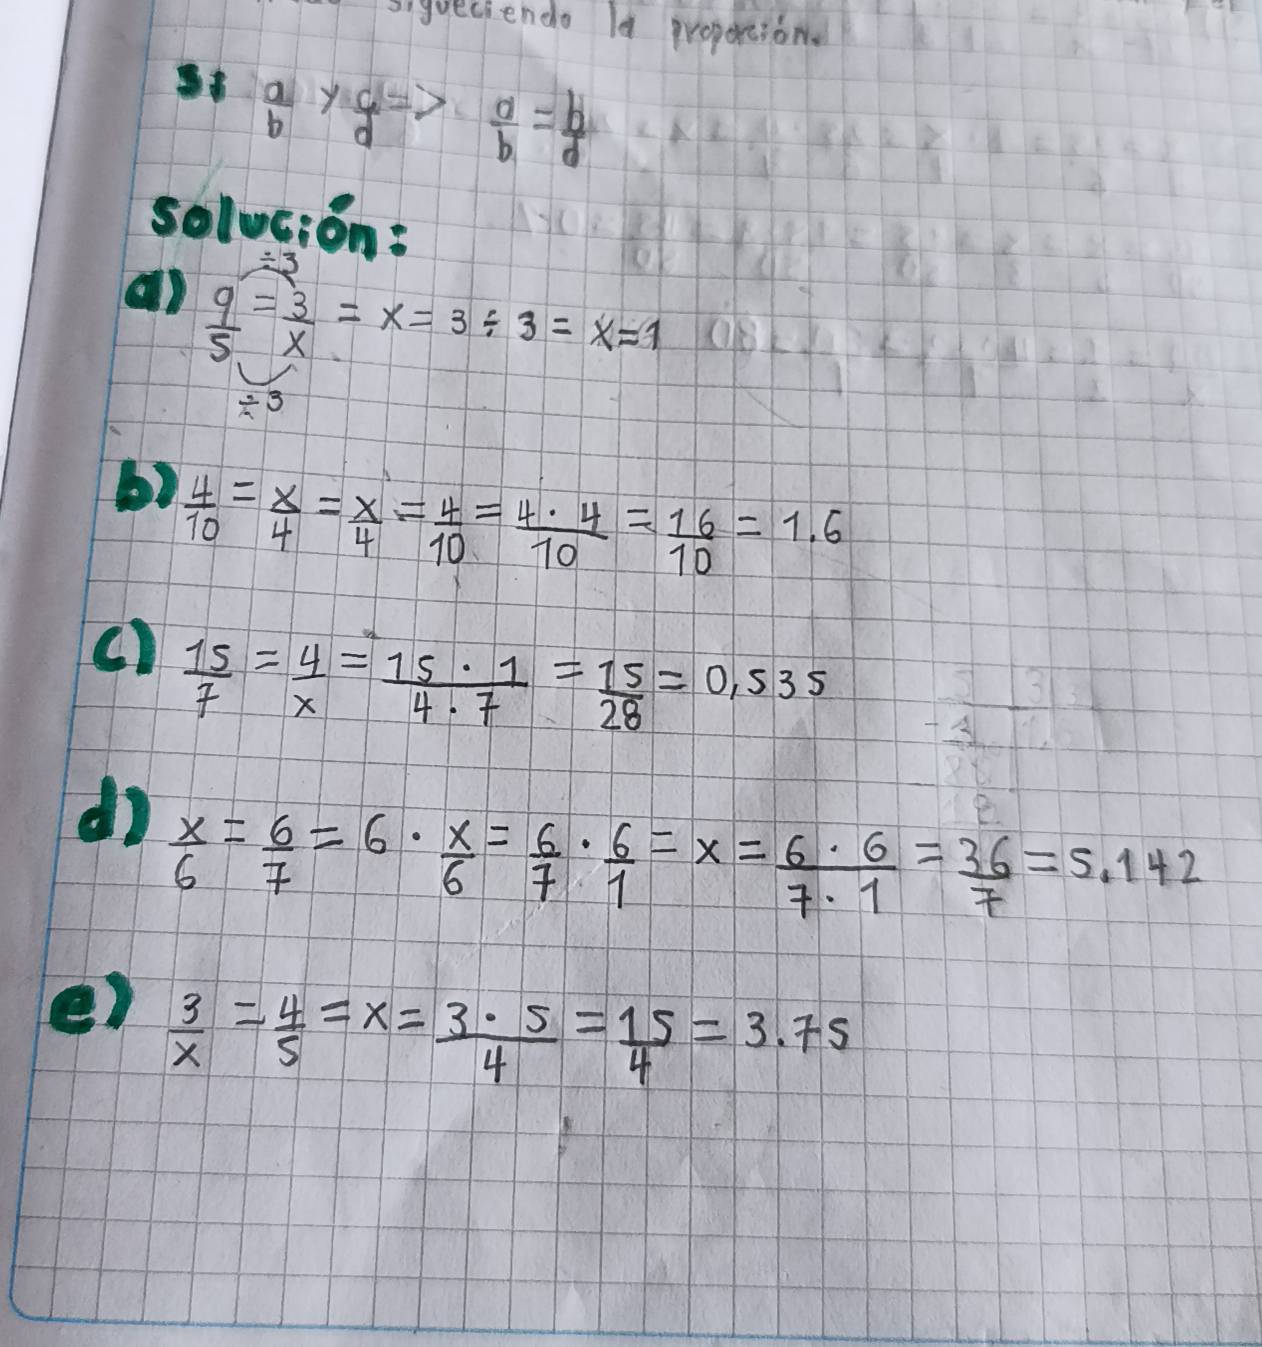 sigueciendo la proporción.
si a/b y c/d => a/b = b/d
solución:
÷3
a) 9/5 = 3/x = x = 3 ÷ 3 = x = 1
÷3
b) 4/10 = x/4 = x/4 = 4/10 = 4·4/10 = 16/10 = 1.6
c) 15/7 = 4/x = 15·1/4·7 = 15/28 = 0,535
d) x/6 = 6/7 = 6 · x/6 = 6/7 · 6/1 = x = 6·6/7·1 = 36/7 = 5.142
e) 3/x = 4/5 = x = 3·5/4 = 15/4 = 3.75